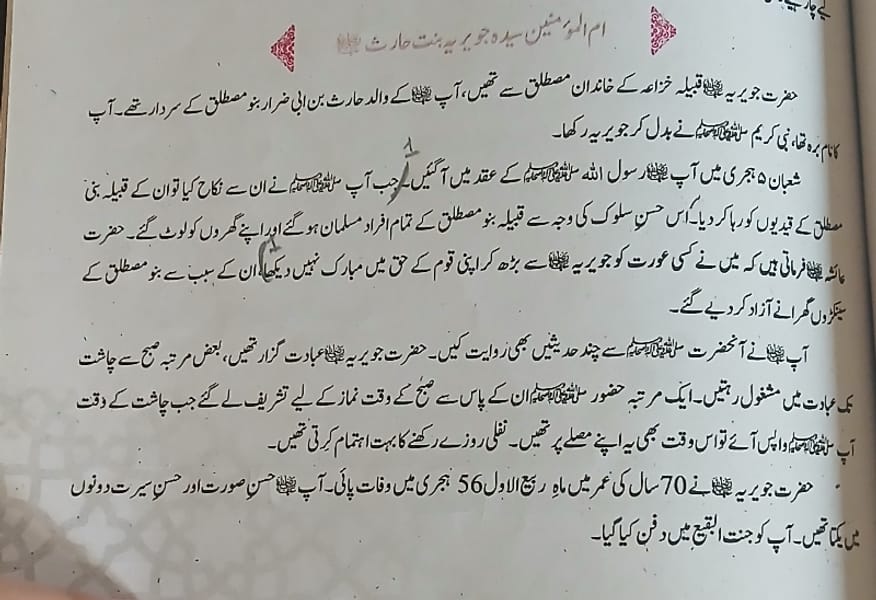 لیے چار پیسے
ام المؤمنین سیدہ جویریہ بنت حارث رضی اللہ عنہا
حضرت جویریہ رضی اللہ عنہا قبیلہ خزاعہ کے خاندان مصطلق سے تھیں، آپ رضی اللہ عنہا کے والد حارث بن ابی ضرار بنو مصطلق کے سردار تھے۔ آپ
کا نام برہ تھا، نبی کریم ﷺ نے بدل کر جویریہ رکھا۔
شعبان ۵ ہجری میں آپ رضی اللہ عنہا رسول اللہ ﷺ کے عقد میں آ گئیں۔ جب آپ ﷺ نے ان سے نکاح کیا تو ان کے قبیلہ بنی
مصطلق کے قیدیوں کو رہا کر دیا۔ اُس حسنِ سلوک کی وجہ سے قبیلہ بنو مصطلق کے تمام افراد مسلمان ہو گئے اور اپنے گھروں کو لوٹ گئے۔ حضرت
عائشہ رضی اللہ عنہا فرماتی ہیں کہ میں نے کسی عورت کو جویریہ رضی اللہ عنہا سے بڑھ کر اپنی قوم کے حق میں مبارک نہیں دیکھا، ان کے سبب سے بنو مصطلق کے
سینکڑوں گھرانے آزاد کر دیے گئے۔
آپ رضی اللہ عنہا نے آنحضرت ﷺ سے چند حدیثیں بھی روایت کیں۔ حضرت جویریہ رضی اللہ عنہا عبادت گزار تھیں، بعض مرتبہ صبح سے چاشت
تک عبادت میں مشغول رہتیں۔ ایک مرتبہ حضور ﷺ ان کے پاس سے صبح کے وقت نماز کے لیے تشریف لے گئے جب چاشت کے وقت
آپ ﷺ واپس آئے تو اس وقت بھی یہ اپنے مصلے پر تھیں۔ نفلی روزے رکھنے کا بہت اہتمام کرتی تھیں۔
حضرت جویریہ رضی اللہ عنہا نے 70 سال کی عمر میں ماہِ ربیع الاول 56 ہجری میں وفات پائی۔ آپ رضی اللہ عنہا حسنِ صورت اور حسنِ سیرت دونوں
میں یکتا تھیں۔ آپ کو جنت البقیع میں دفن کیا گیا۔